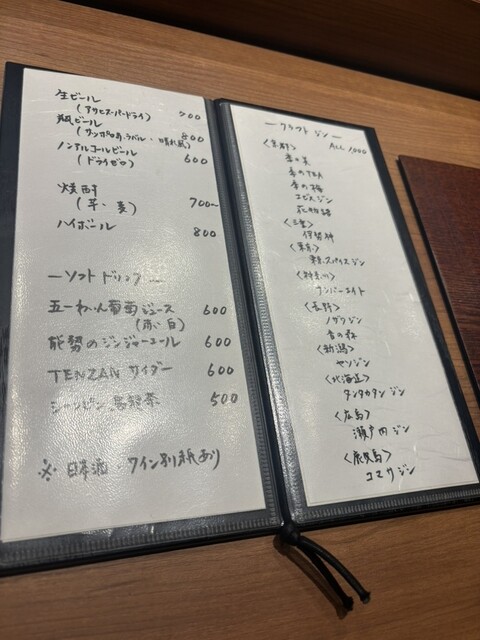 生ビール
(アサヒスーパードライ) 700
瓶ビール
ノンアルコールビール
(ドライゼロ) 600
焼酎
(芋・麦) 700~
ハイボール 800
—ソフトドリンク—
五一わいん葡萄ジュース 600
(赤・白)
能勢のジンジャーエール 600
TENZAN サイダー 600
500
※ 日本酒・ワイン別紙あり
—クラフト ジン—
ALL 1000
<京都>
季の美
季のTEA
季の梅
ユビス ジン
花物語
<三重>
伊勢神
<東京>
東京スパイスジン
<神奈川>
ナンバーエイト
<長野>
ノザワジン
香の森
<新潟>
ヤソジン
<北海道>
タンタカタン ジン
<広島>
瀬戸内 ジン
<鹿児島>
コマサ ジン